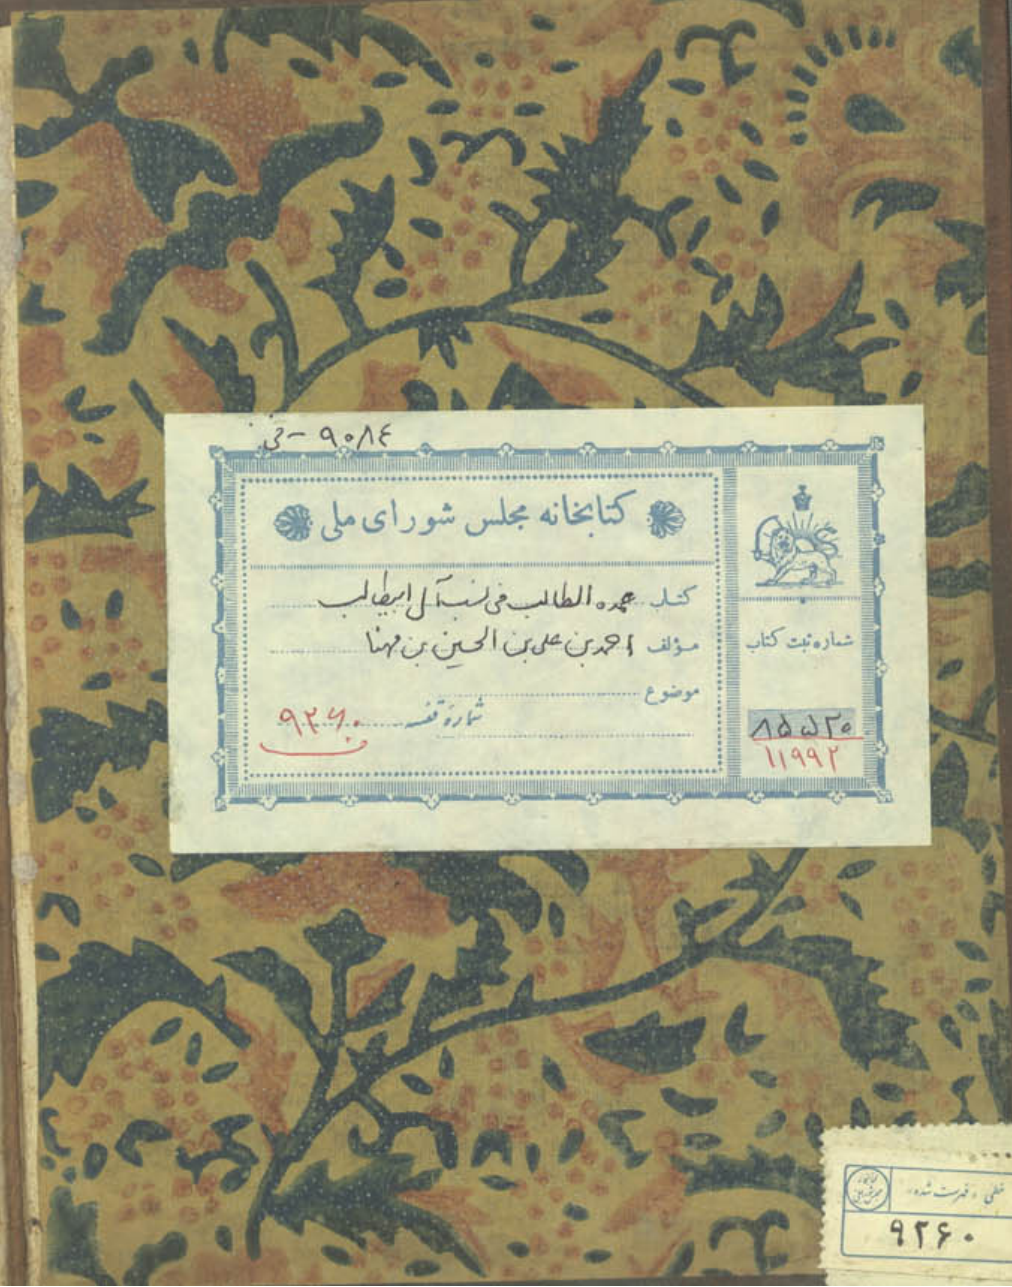 ٩٠٨٤ - فی
کتابخانه مجلس شورای ملی
کتاب عمده الطالب فی نسب آل ابیطالب
مؤلف احمد بن علی بن الحسین بن مهنا
موضوع
شماره قفسه ٩٢٦٠
شماره ثبت کتاب
١١٩٩٢
خطی فهرست شده
٩٢۶٠